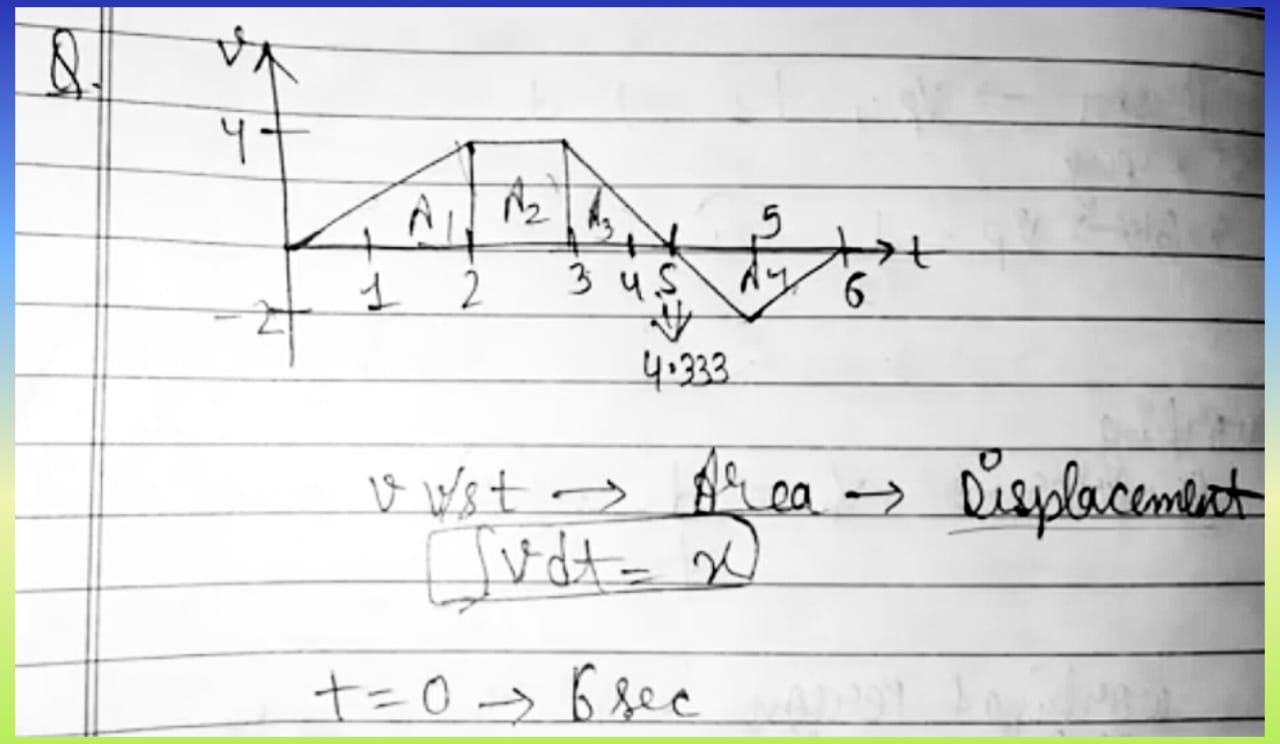 Q.
v
4
A1 A2 A3 5
t
1 2 3 4 S A4 6
-2
4.333
v v/s t → Area → Displacement
∫vdt = x
t = 0 → 6 sec